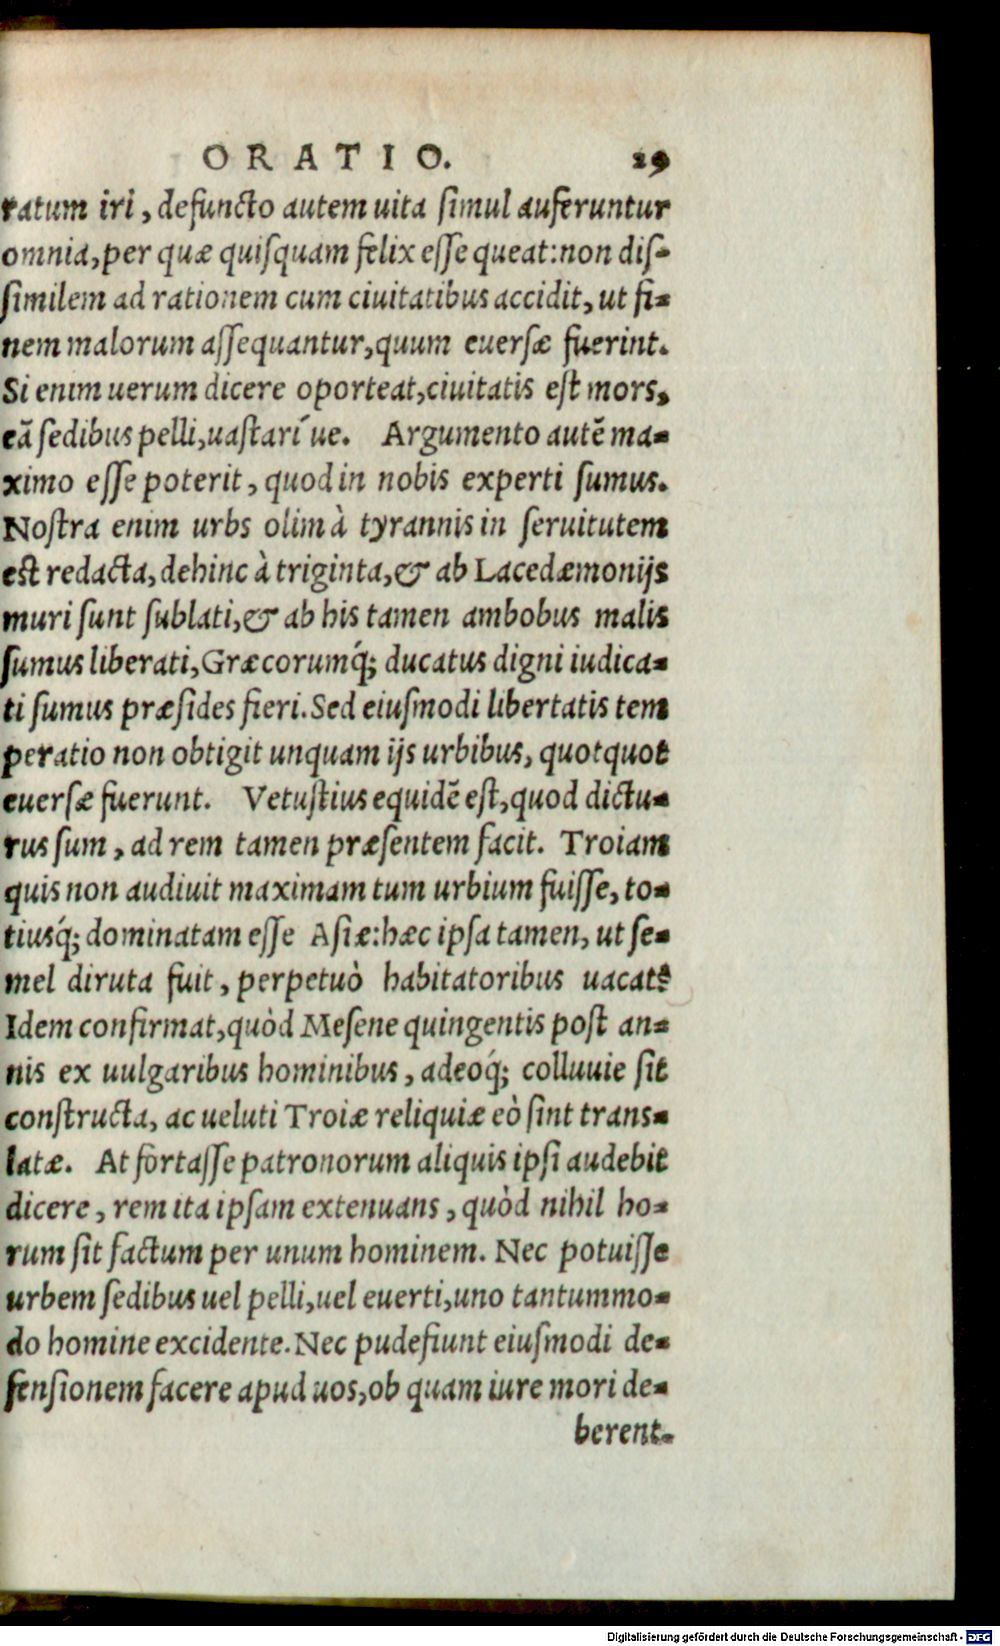 ORATIO. 29
ratum iri, defuncto autem uita simul auferuntur
omnia, per quæ quisquam felix esse queat: non dis-
similem ad rationem cum ciuitatibus accidit, ut fi-
nem malorum assequantur, quum euersæ fuerint.
Si enim uerum dicere oporteat, ciuitatis est mors,
eã sedibus pelli, uastari´ue. Argumento autẽ ma-
ximo esse poterit, quod in nobis experti sumus.
Nostra enim urbs olim à tyrannis in seruitutem
est redacta, dehinc à triginta, & ab Lacedæmonijs
muri sunt sublati, & ab his tamen ambobus malis
sumus liberati, Græcorumq́; ducatus digni iudica-
ti sumus præsides fieri. Sed eiusmodi libertatis tem
peratio non obtigit unquam ijs urbibus, quotquot
euersæ fuerunt. Vetustius equidẽ est, quod dictu-
rus sum, ad rem tamen præsentem facit. Troiam
quis non audiuit maximam tum urbium fuisse, to-
tiusq́; dominatam esse Asiæ: hæc ipsa tamen, ut se-
mel diruta fuit, perpetuò habitatoribus uacat?
Idem confirmat, quòd Mesene quingentis post an-
nis ex uulgaribus hominibus, adeoq́; colluuie sit
constructa, ac ueluti Troiæ reliquiæ eò sint trans-
latæ. At fortasse patronorum aliquis ipsi audebit
dicere, rem ita ipsam extenuans, quòd nihil ho-
rum sit factum per unum hominem. Nec potuisse
urbem sedibus uel pelli, uel euerti, uno tantummo-
do homine excidente. Nec pudefiunt eiusmodi de-
fensionem facere apud uos, ob quam iure mori de-
berent.
Digitalisierung gefördert durch die Deutsche Forschungsgemeinschaft - DFG